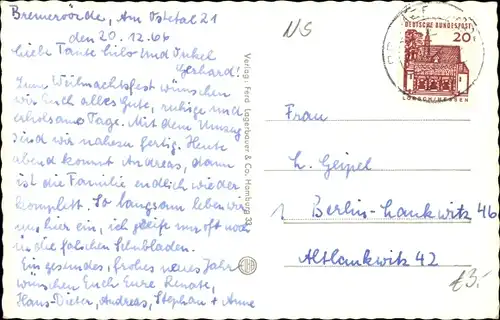 Bremervörde, Am Ostetal 21
den 20.12.66
Liebe Tante Lilo und Onkel
Gerhard!
Zum Weihnachtsfest wünschen
wir Euch alles Gute, ruhige und
erholsame Tage. Mit dem Umzug
sind wir nahezu fertig. Heute
abend kommt Andreas, dann
ist die Familie endlich wieder
komplett. So langsam leben wir
uns hier ein, ich greife nur oft noch
in die falschen Schubladen.
Ein gesundes, frohes neues Jahr
wünschen Euch Eure Renate,
Hans-Dieter, Andreas, Stephan + Anne
Verlag: Ferd. Lagerbauer & Co. Hamburg 33
NS
DEUTSCHE BUNDESPOST
20
LORSCH/HESSEN
Frau
L. Geipel
1 Berlin-Lankwitz 46
Altlankwitz 42
£3.-